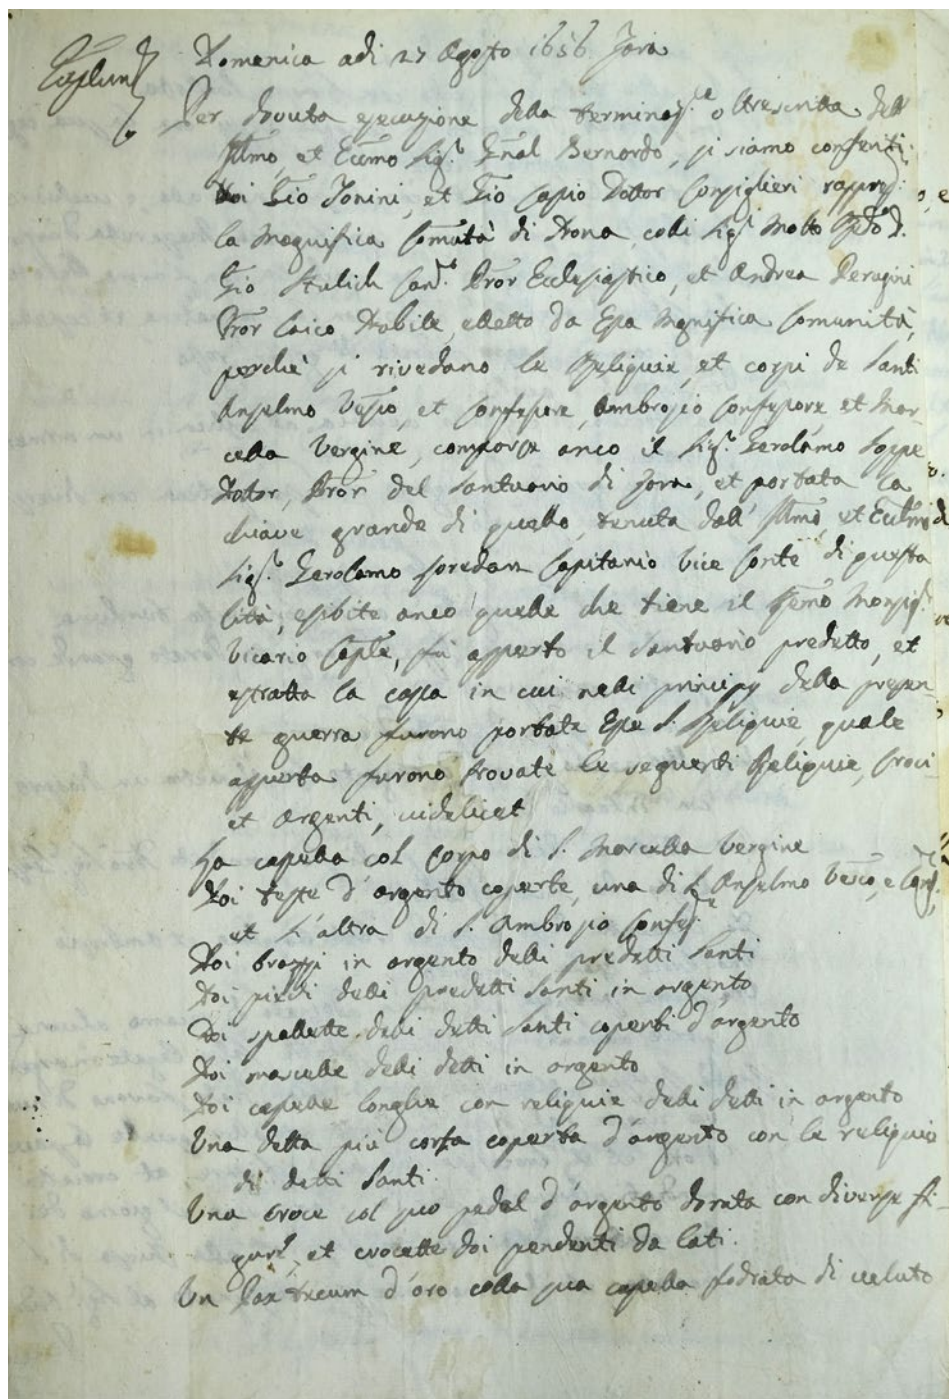 Domenica adi 27 Agosto 1656 Zara
Per dovuta essecuzione della terminaz.e oltrescritta dell
Illmo, et Eccmo Sig.r Gnal Bernardo, si siamo conferiti
Noi Gio Tonini, et Gio Dottor Consiglieri rappresi
la Magnifica Comũtà di Nona, colli Sigri Molto Rdo D.
Gio Can.co Pror Ecclesiastico, et Andrea Perugini
Pror Laico Nobile, elletto da Essa Magnifica Comunità,
perchè si rivedano le Reliquie, et corpi de Santi
Anselmo Vesço, et Confessore, Ambrosio Confessore et Mar
cella Vergine, comparse anco il Sig.r Gerolamo Soppe
Dotor, Pror del Santuario di Zara, et portata la
chiave grande di quello, tenuta dall' Illmo, et Eccmo
Sig.r Gerolamo Loredan Capitanio Vice Conte di questa
Città, esibite anco quelle che tiene il Remo Monsig.r
Vicario Caple, fù apperto il Santuario predetto, et
estratta la cassa in cui nelli principij della presen-
te guerra furono portate Esse S. Reliquie, quale
apperta furono trovate le seguenti Reliquie, Croci
et Argenti, videlicet
La capsella col Corpo di S. Marcella Vergine
Doi teste d'argento coperte, una di S. Anselmo Vesco, e Conf.r,
et l'altra di S. Ambrosio Confes.re
Doi brazzi in argento delli predetti Santi
Doi piedi delli predetti Santi in argento
Doi spallette delli detti Santi coperti d'argento
Doi mascelle delli detti in argento
Doi capselle longhe con reliquie delli detti in argento
Una detta più corta coperta d'argento con le reliquie
di detti Santi.
Una croce col suo pedal d'argento dorata con diverse fi-
gure, et crocette doi pendenti da lati.
Un Pax tecum d'oro colla sua capsella fodrata di veluto